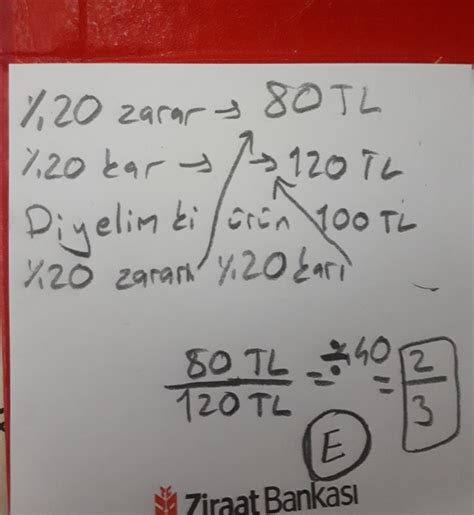 %20 zarar → 80 TL
%20 kar → → 120 TL
Diyelim ki ürün 100 TL
%20 zararı %20 karı
80 TL / 120 TL = ÷40 = 2/3
E
Ziraat Bankası